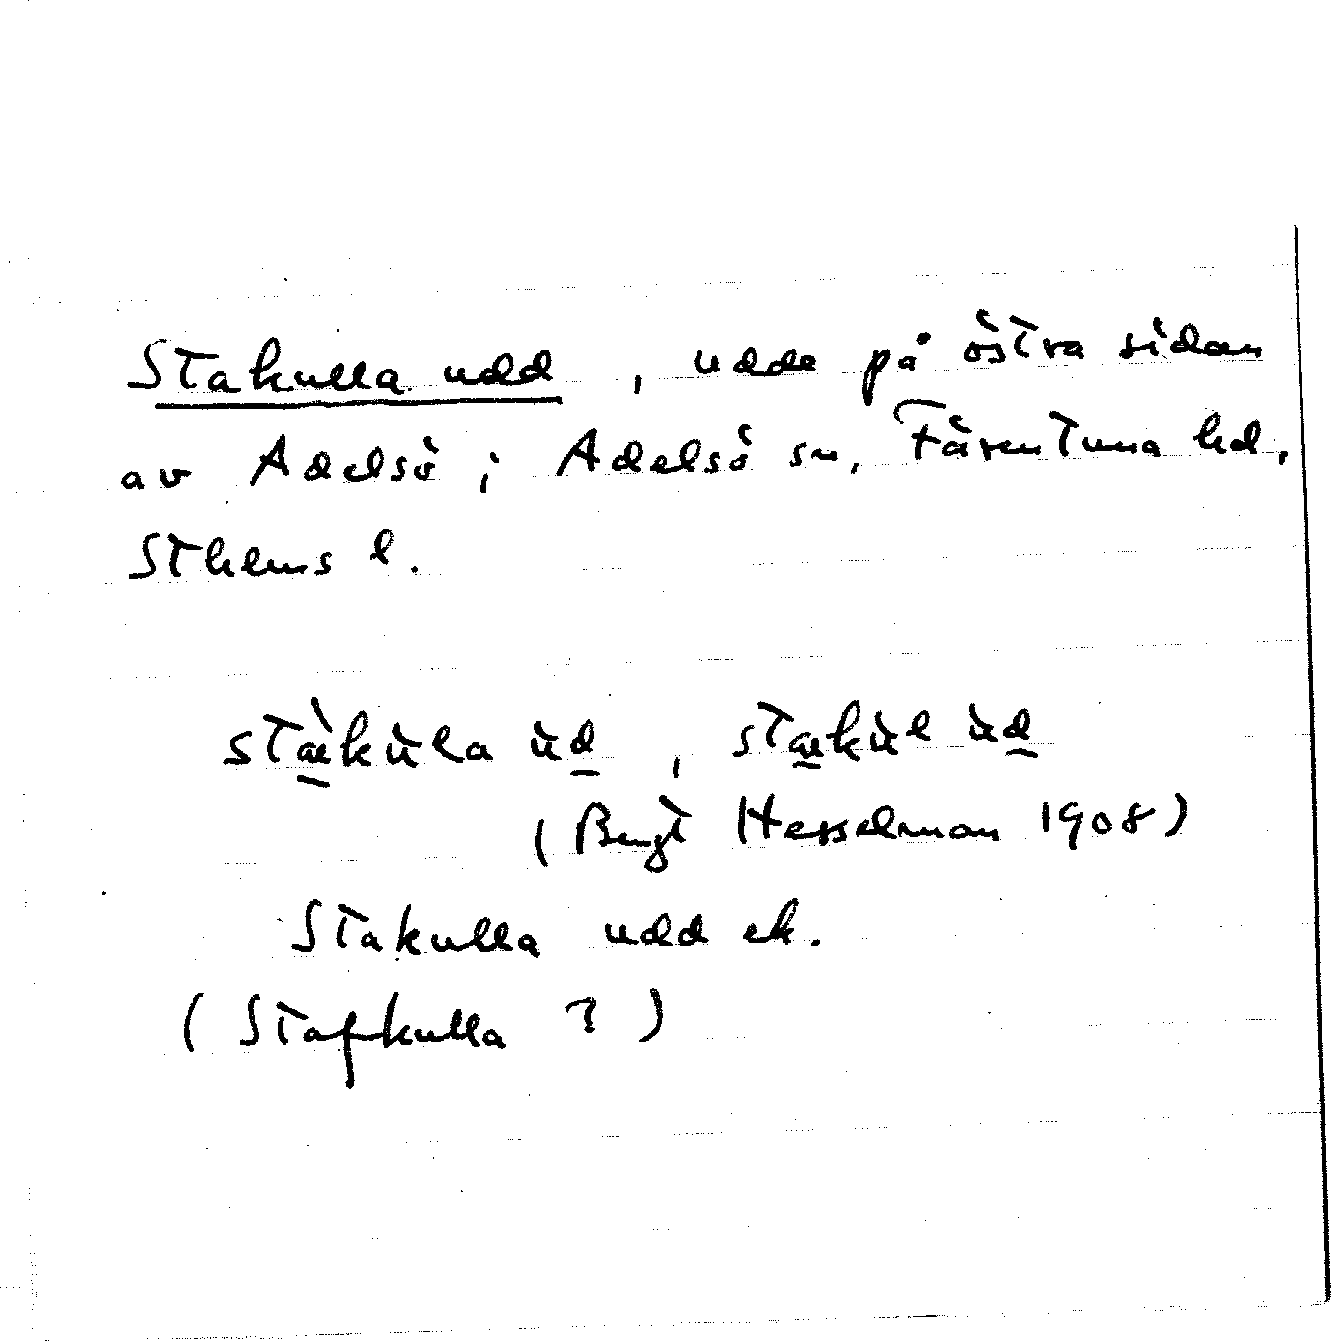 Stakulla udd, udde på östra sidan
av Adelsö i Adelsö sn, Färentuna hd,
Sthlms l.
stæ̀kùla ùd, stækùl ùd
(Bengt Hesselman 1908)
Stakulla udd ek.
(Stafkulla ?)